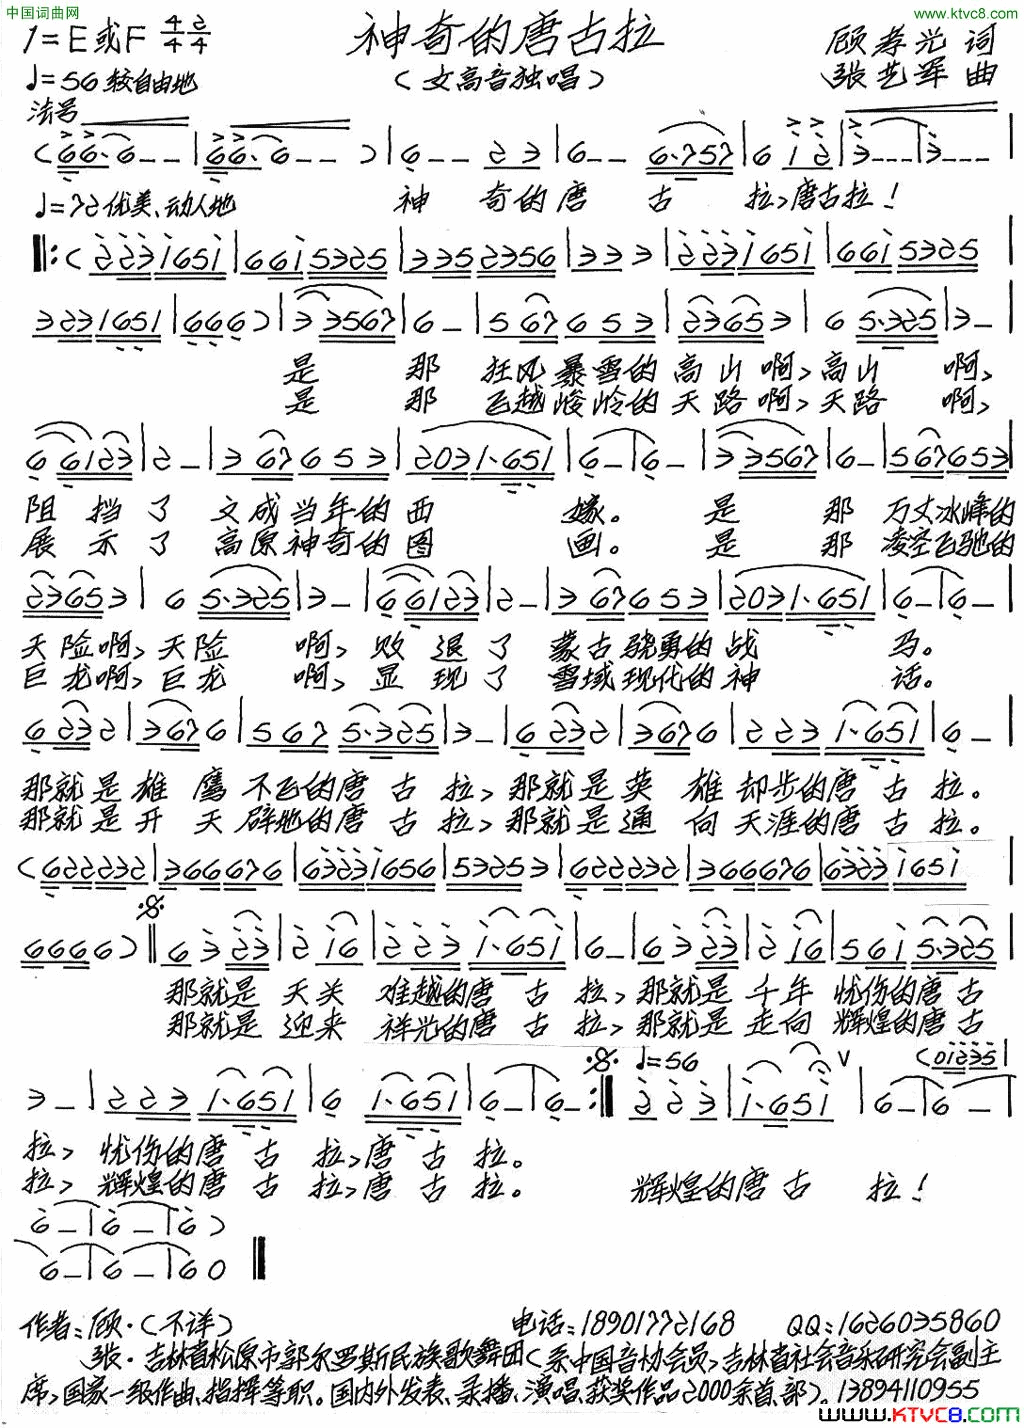 中国词曲网
www.ktvc8.com
1=E或F 4/4 2/4
神奇的唐古拉
顾孝光 词
♩=56 较自由地
(女高音独唱)
张艺军 曲
法号
(66·6--|66·6---)|6--- 23|6-- 6·757|6 12|3---|3---|
♩=72 优美、动人地
神 奇的唐 古 拉,唐古拉!
‖:(2231651|661 5325|335 2356|333|2231651|661 5325|
3231651|666)|3 3567|6-|5 67653|23653|6 5·325|3-|
是 那 狂风暴雪的高山啊,高山 啊,
是 那 飞越峻岭的天路啊,天路 啊,
6 6123|2-|3 67653|203 1·651|6-|6-|3 3567|6-|5 67653|
阻 挡 了 文成当年的西 嫁。是 那 万丈冰峰的
展 示 了 高原神奇的图 画。是 那 凌空飞驰的
23653|6 5·325|3-|6 6123|2-|3 67653|203 1·651|6-|6-|
天险啊,天险 啊,败 退 了 蒙古骁勇的战 马。
巨龙啊,巨龙 啊,显 现 了 雪域现代的神 话。
6 232|3676|567 5·325|3-|6 232|3676|223 1·651|6-|
那就是雄 鹰 不飞的唐 古 拉,那就是英 雄 却步的唐 古 拉。
那就是开 天 辟地的唐 古 拉,那就是通 向 天涯的唐 古 拉。
(622232|366676|6323 1656|53253|622232|366676|6323 1651|
6666)‖6 3 23|2 16|223 1·651|6-|6 3 23|2 16|561 5·325|
那就是 天关 难越的唐 古 拉,那就是 千年 忧伤的唐 古
那就是 迎来 祥光的唐 古 拉,那就是 走向 辉煌的唐 古
♩=56
(01235|
3-|223 1·651|6 1·651|6-|6-:‖2 2 3|1·651|6-|6-|
拉, 忧伤的唐 古 拉,唐 古 拉。
拉, 辉煌的唐 古 拉,唐 古 拉。 辉煌的唐 古 拉!
6-|6-|6)
6-|6-|60‖
作者:顾·(不详) 电话:18901772168 QQ:1626035860
张·吉林省松原市郭尔罗斯民族歌舞团(系中国音协会员,吉林省社会音乐研究会副主
席,国家一级作曲、指挥等职。国内外发表、录播、演唱、获奖作品2000余首、部)。13894110955
www.KTVC8.com